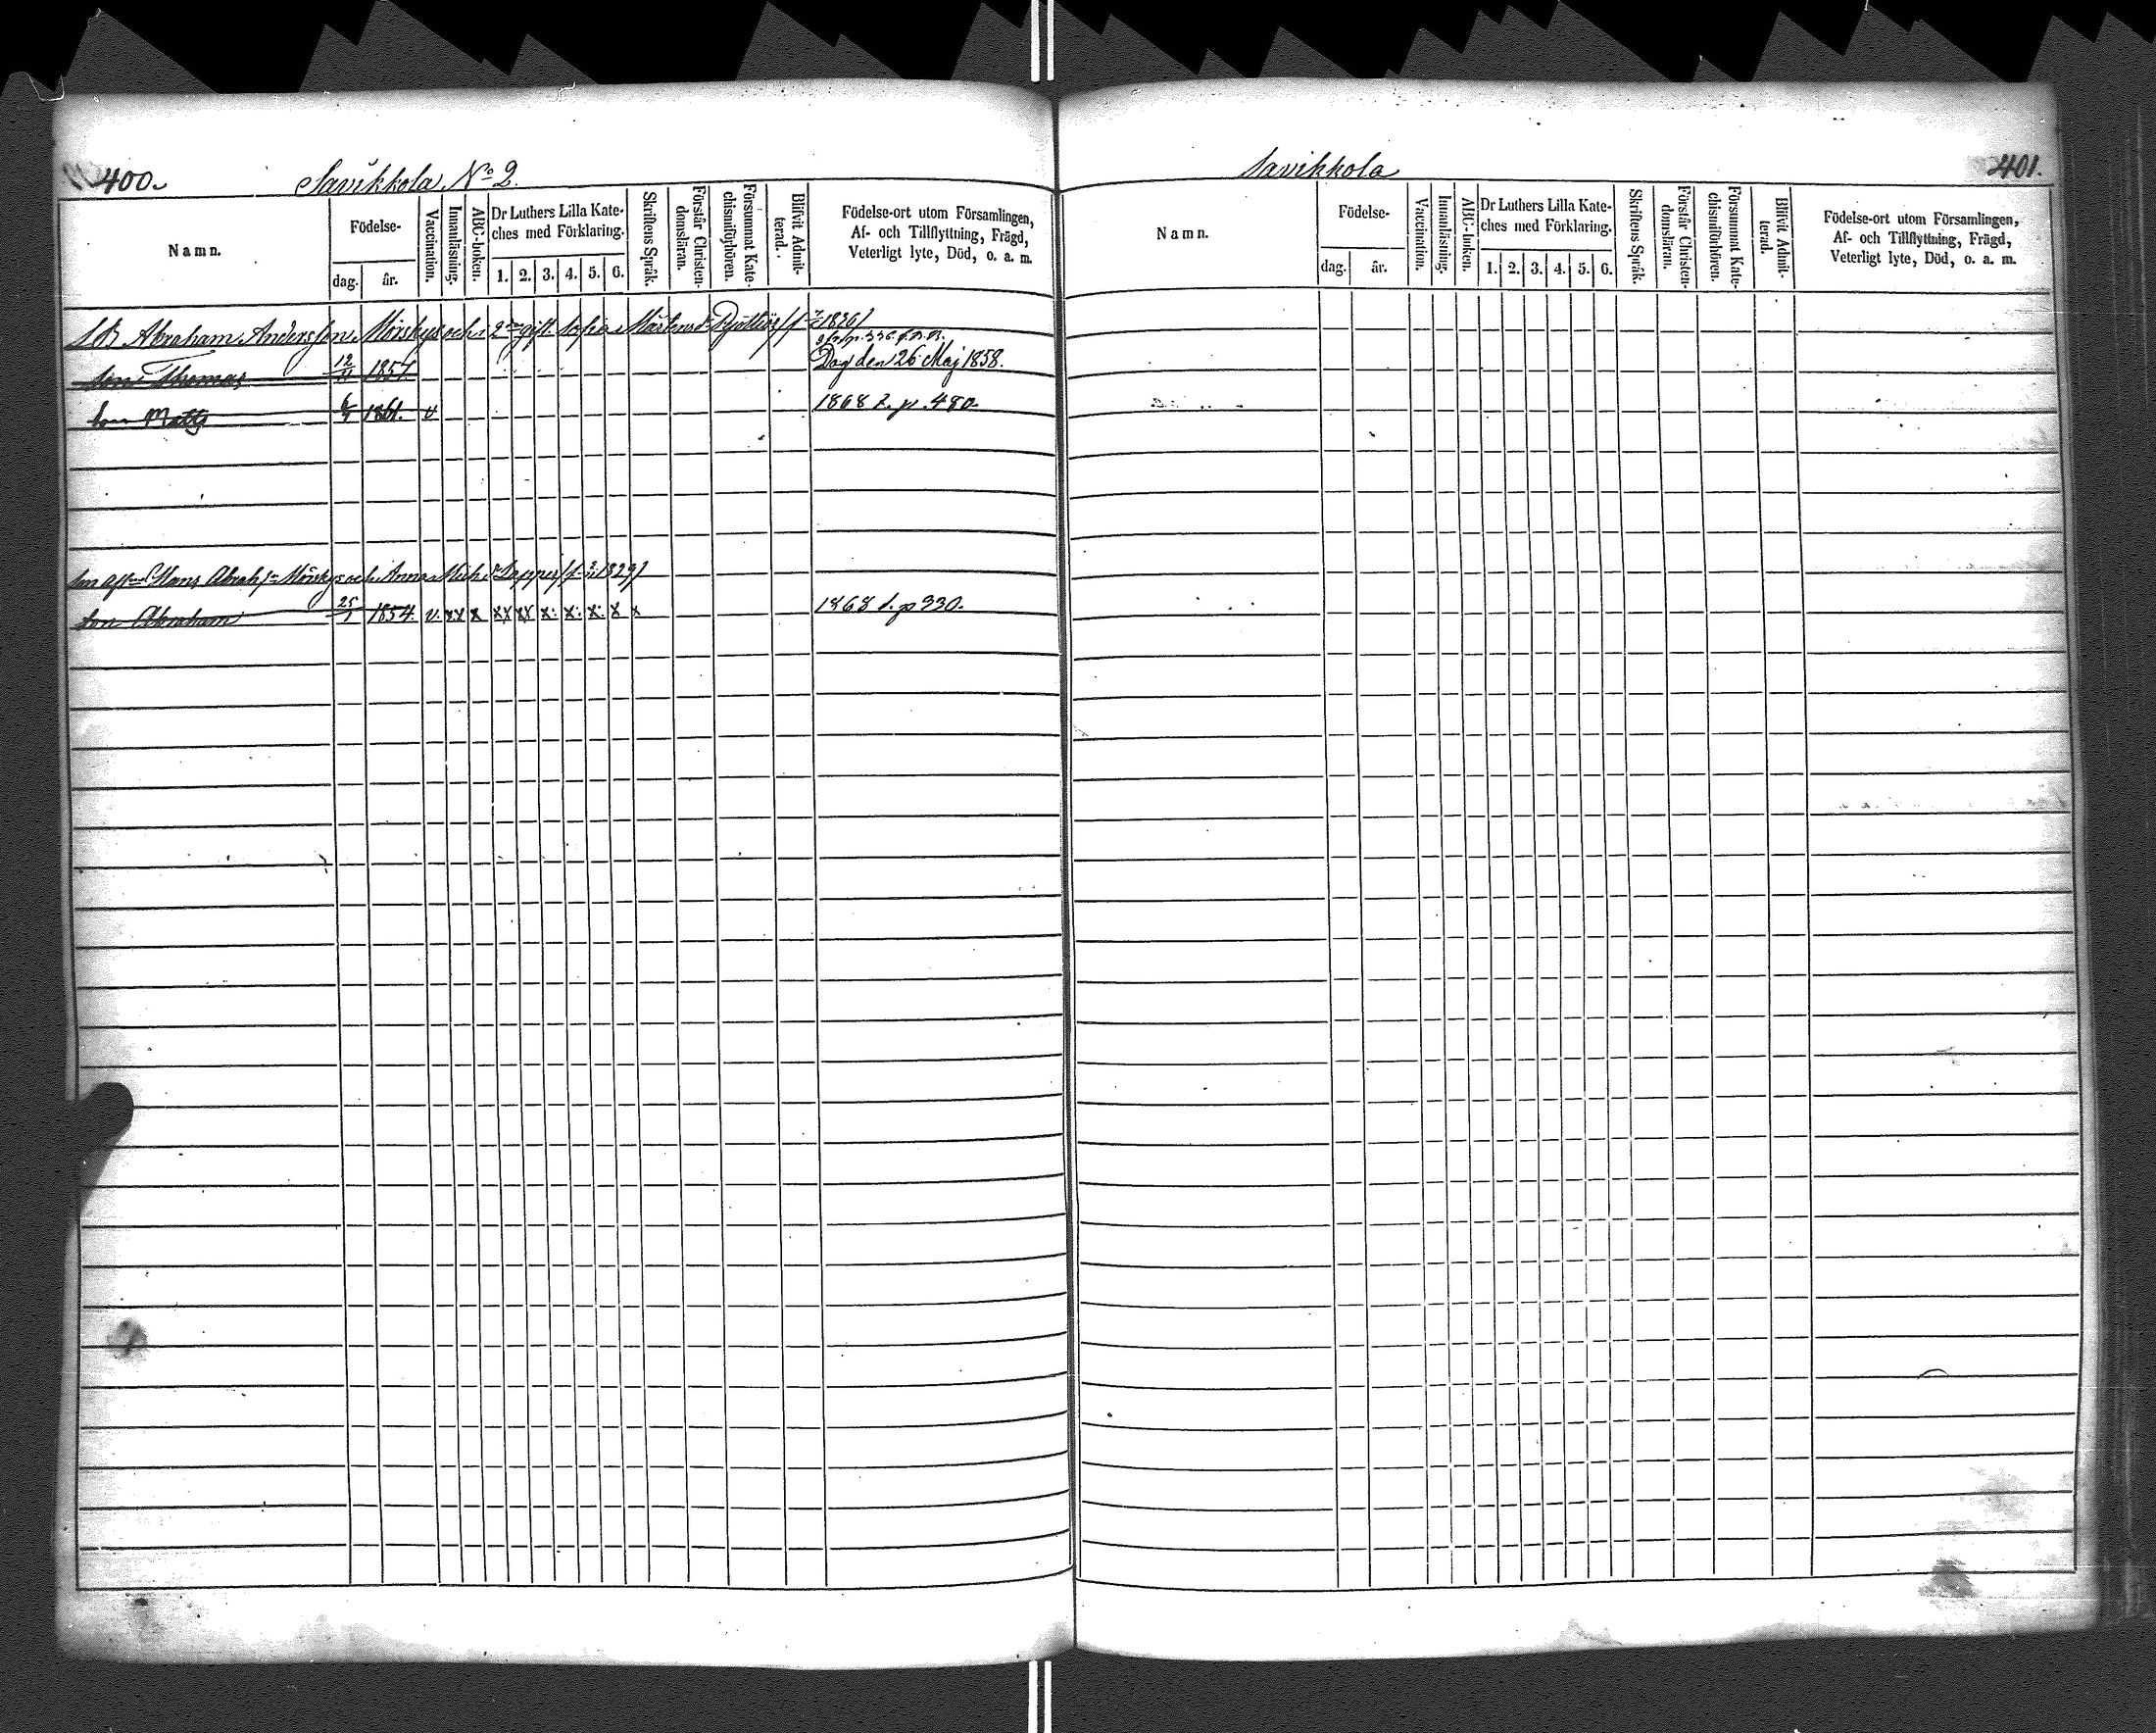 400.
Savikkola No 2.
Namn.
Födelse-
dag.
år.
Vaccination.
Innanläsning.
ABC-boken.
Dr Luthers Lilla Kate-
ches med Förklaring.
1. 2. 3. 4. 5. 6.
Skriftens Språk.
Förstår Christen-
domsläran.
Försummat Kate-
chismiförhören.
Blifvit Admit-
terad.
Födelse-ort utom Församlingen,
Af- och Tillflyttning, Frägd,
Veterligt lyte, Död, o. a. m.
Abraham Andersson Mörskys och 2 gift. Sofia Mårtensdr 1826)
son Thomas 12/11 1857 Dog den 26 Maj 1858.
son Matts 1861. v 1868 p. 480
Hans Abrah Mörskys och Anna Mich 1829)
son Abraham 25/1 1854. v. xx x xx xx x: x: x: x x 1868 p 930.
Savikkola
401.
Namn.
Födelse-
dag.
år.
Vaccination.
Innanläsning.
ABC-boken.
Dr Luthers Lilla Kate-
ches med Förklaring.
1. 2. 3. 4. 5. 6.
Skriftens Språk.
Förstår Christen-
domsläran.
Försummat Kate-
chismiförhören.
Blifvit Admit-
terad.
Födelse-ort utom Församlingen,
Af- och Tillflyttning, Frägd,
Veterligt lyte, Död, o. a. m.